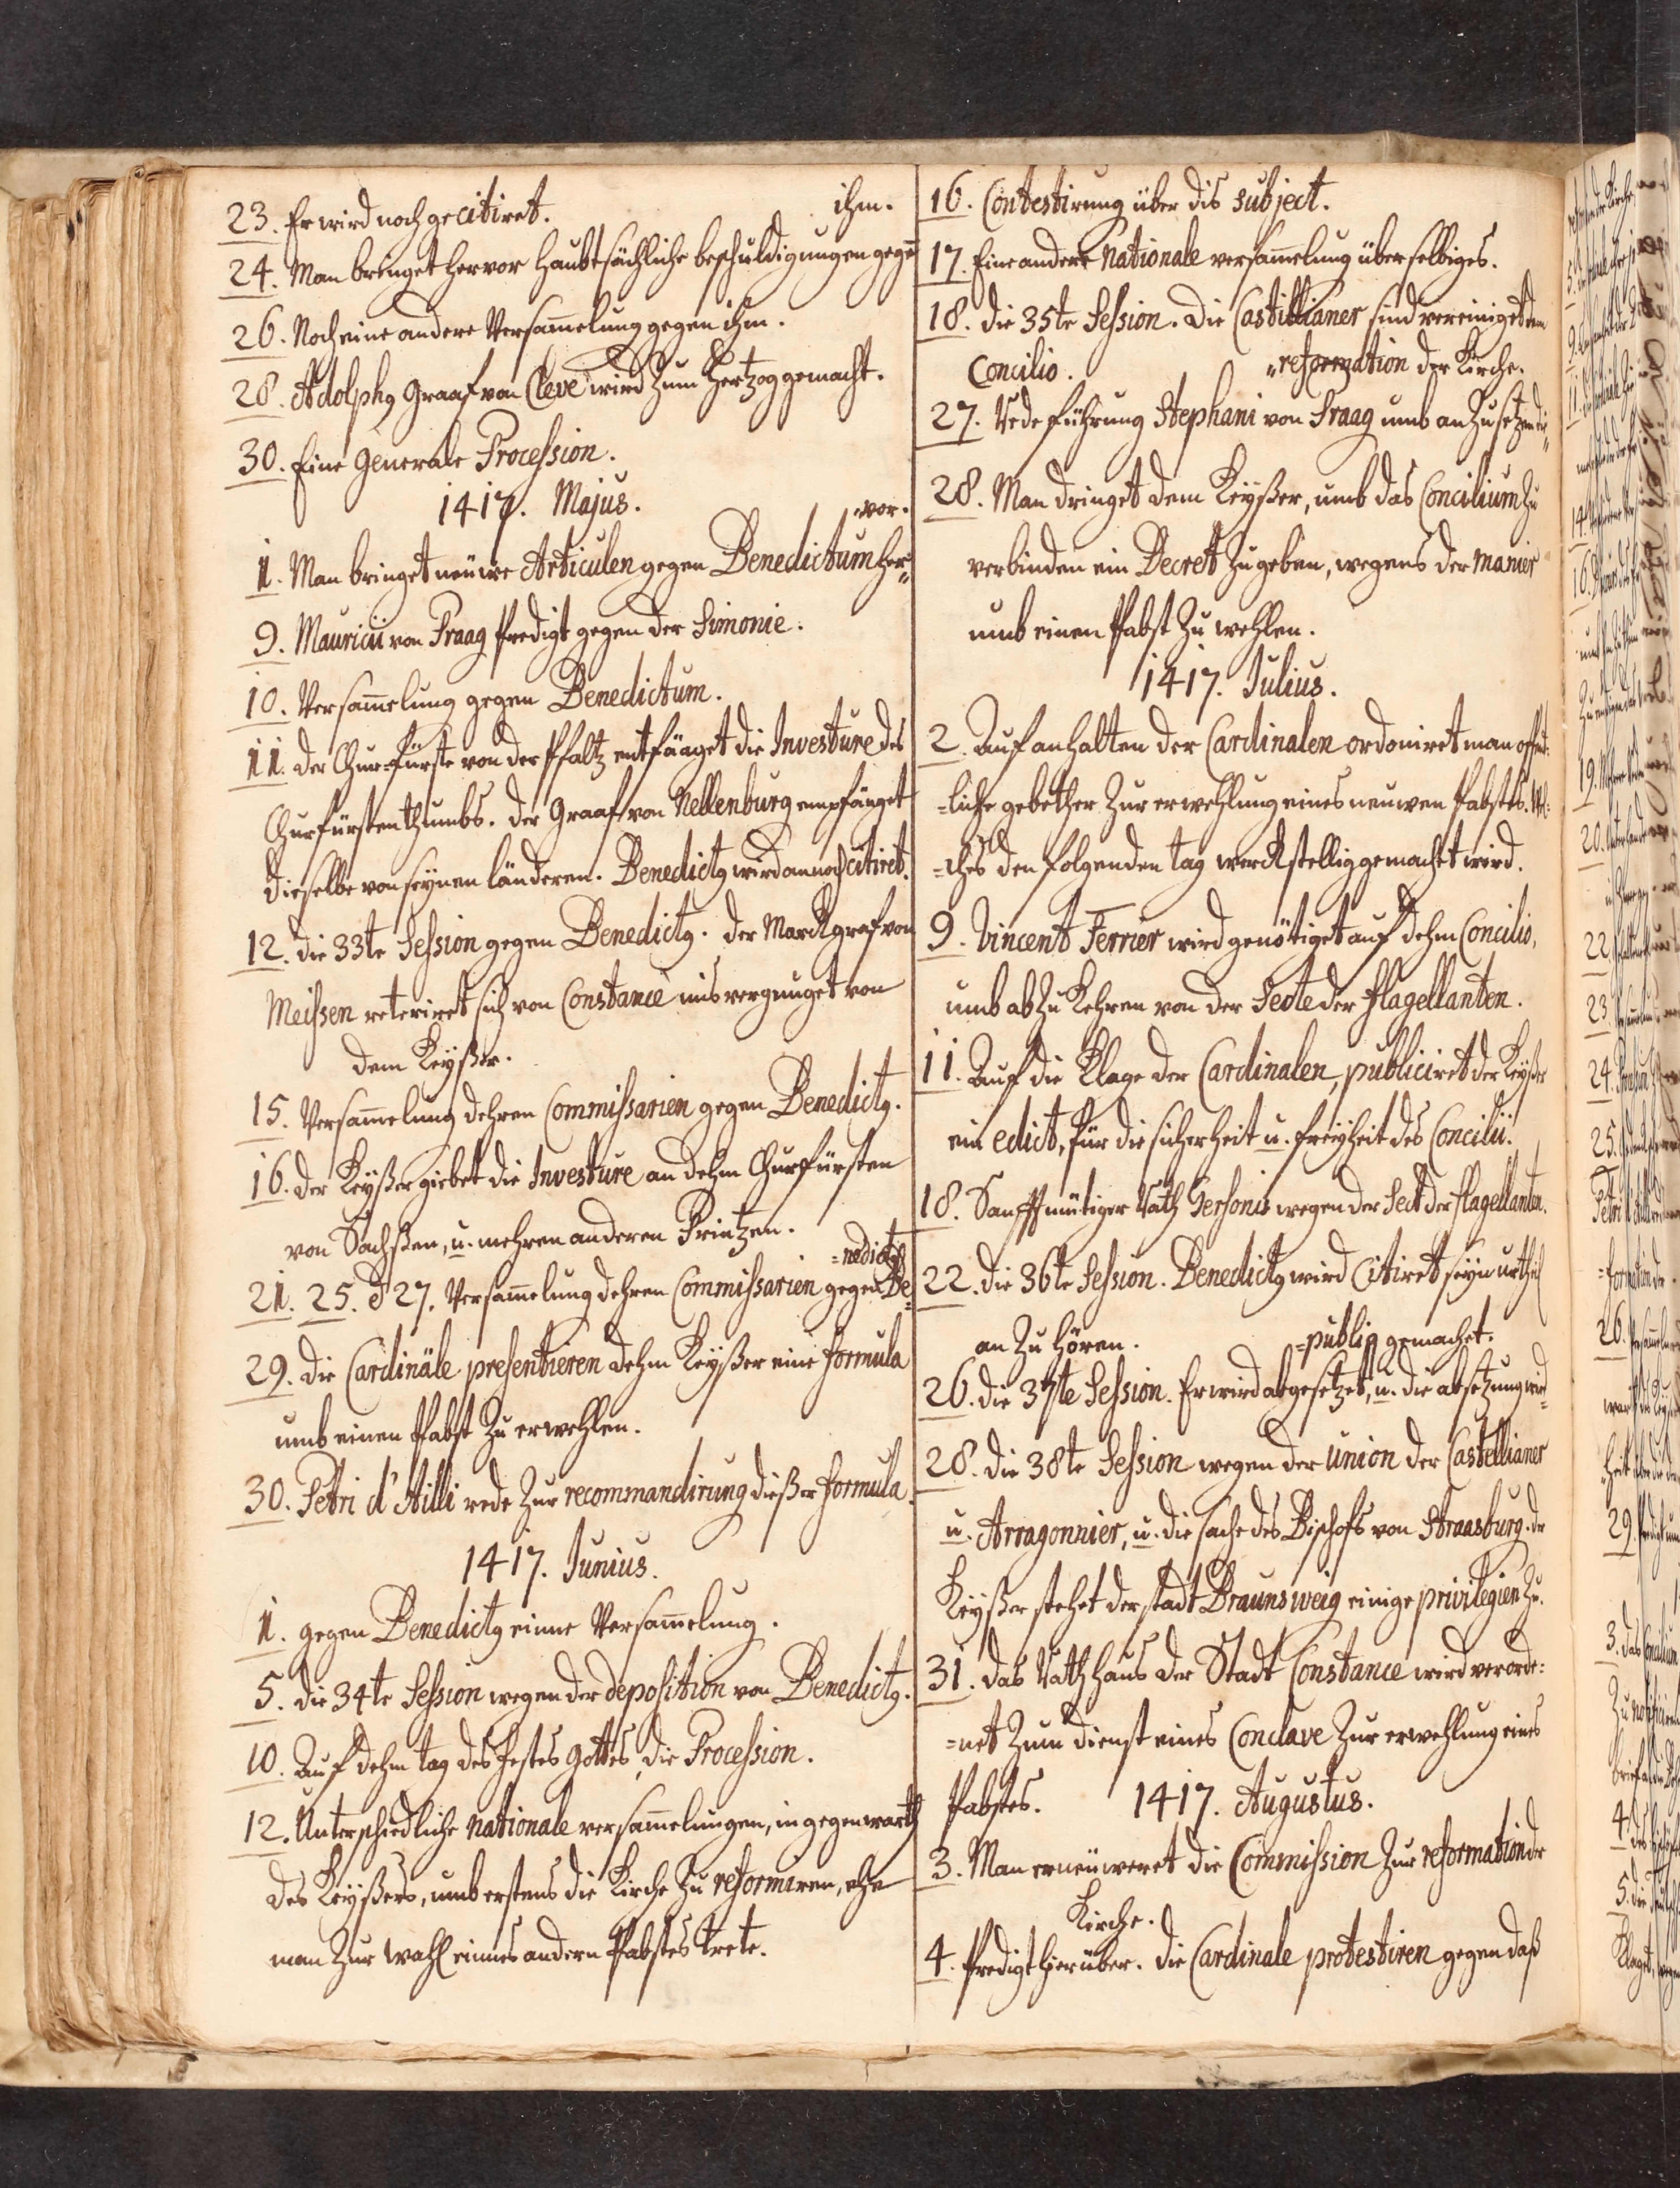 23. Er wird noch gecitiret.
ihm.
24. Man bringet hervor haubtsächliche beschuldigungen gegen
26. Noch eine andere Versam̅elung gegen ihm.
28. Adolphg Graaf von Cleve wird zum Hertzog gemacht.
30. Eine Generale Procession.
1417. Majus.
=vor.
1. Man bringet neüwe Articulen gegen Benedictum her=
9. Mauricii von Praag Predigt gegen der Simonie.
10. Versam̅elung gegen Benedictum.
11. Der Chur-Fürste von der Pfaltz entfänget die Investure des
Churfürstenthumbs. Der Graaf von Nellenburg empfänget
dieselbe von seynen länderen. Benedictg wird annoch citiret.
12. Die 33te Session gegen Benedictg. Der Marckgraf von
Meissen reteriret sich von Constance misvergnuget von
dem Keyßer.
15. Versam̅elung dehren Commissarien gegen Benedictg.
16. Der Keyßer giebet die Investure an dehm Churfürsten
von Sachßen, u. mehren anderen Printzen.
=nedictg
21. 25. & 27. Versam̅elung dehren Commissarien gegen Be=
29. Die Cardinäle presentieren dehm Keyßer eine formula
umb einen Pabst zu erwehlen.
30. Petri d'Ailli rede zur recommandirung dießer formula.
1417. Junius.
1. gegen Benedictg einne Versam̅elung.
5. Die 34te Session wegen der deposition von Benedictg.
10. Auf dehm tag des festes Gottes, die Procession.
12. Unterschiedliche Nationale versam̅elungen, in gegenwarth
des Keyßers, umb erstens die Kirche zu reformiren, ehe
man zur Wahl einnes andern Pabstes trete.
16. Contestirung über dis subject.
17. Eine andere Nationale versam̅elung über selbiges.
18. Die 35te Session. Die Castillianer sind vereiniget dem
Concilio.
=reformation der Kirche.
27. Rede führung Stephani von Praag umb an zu setzen die=
28. Man dringet dem Keyßer, umb das Concilium zu
verbinden ein Decret zu geben, wegens der manier
umb einen Pabst zu wehlen.
1417. Julius.
2. Auf anhalten der Cardinalen ordoniret man offent=
=liche gebether zur erwehlung eines neuwen Pabstes. Wel=
=ches den folgenden tag werckstellig gemacht wird.
9. Vincent Ferrier wird genötiget auf dehm Concilio,
umb ab zu kehren von der Secte der Flagellanten.
11. Auf die Klage der Cardinalen, publiciret der Keyßer
ein edict, für die sicherheit u. freyheit des Concilii.
18. Sanfftmütiger Rath Gersonis wegen der Sect der Flagellanten.
22. Die 36te Session. Benedictg wird Citiret seyn urtheil
an zu hören.
=publiq gemachet.
26. Die 37te Session. Er wird abgesetzet, u. die absetzung wird=
28. Die 38te Session wegen der Union der Castellianer
u. Arragonnier, u. die sache des Bischofs von Straasburg. der
Keyßer stehet der stadt Braunsweig einige privilegien zu.
31. das Rathhaus der Stadt Constance wird verorde=
=net zum dienst eines Conclave zur erwehlung eines
Pabstes. 1417. Augustus.
3. Man erneüweret die Commission zur reformation der
Kirche.
4. Predigt hierüber. Die Cardinale protestiren gegen daß